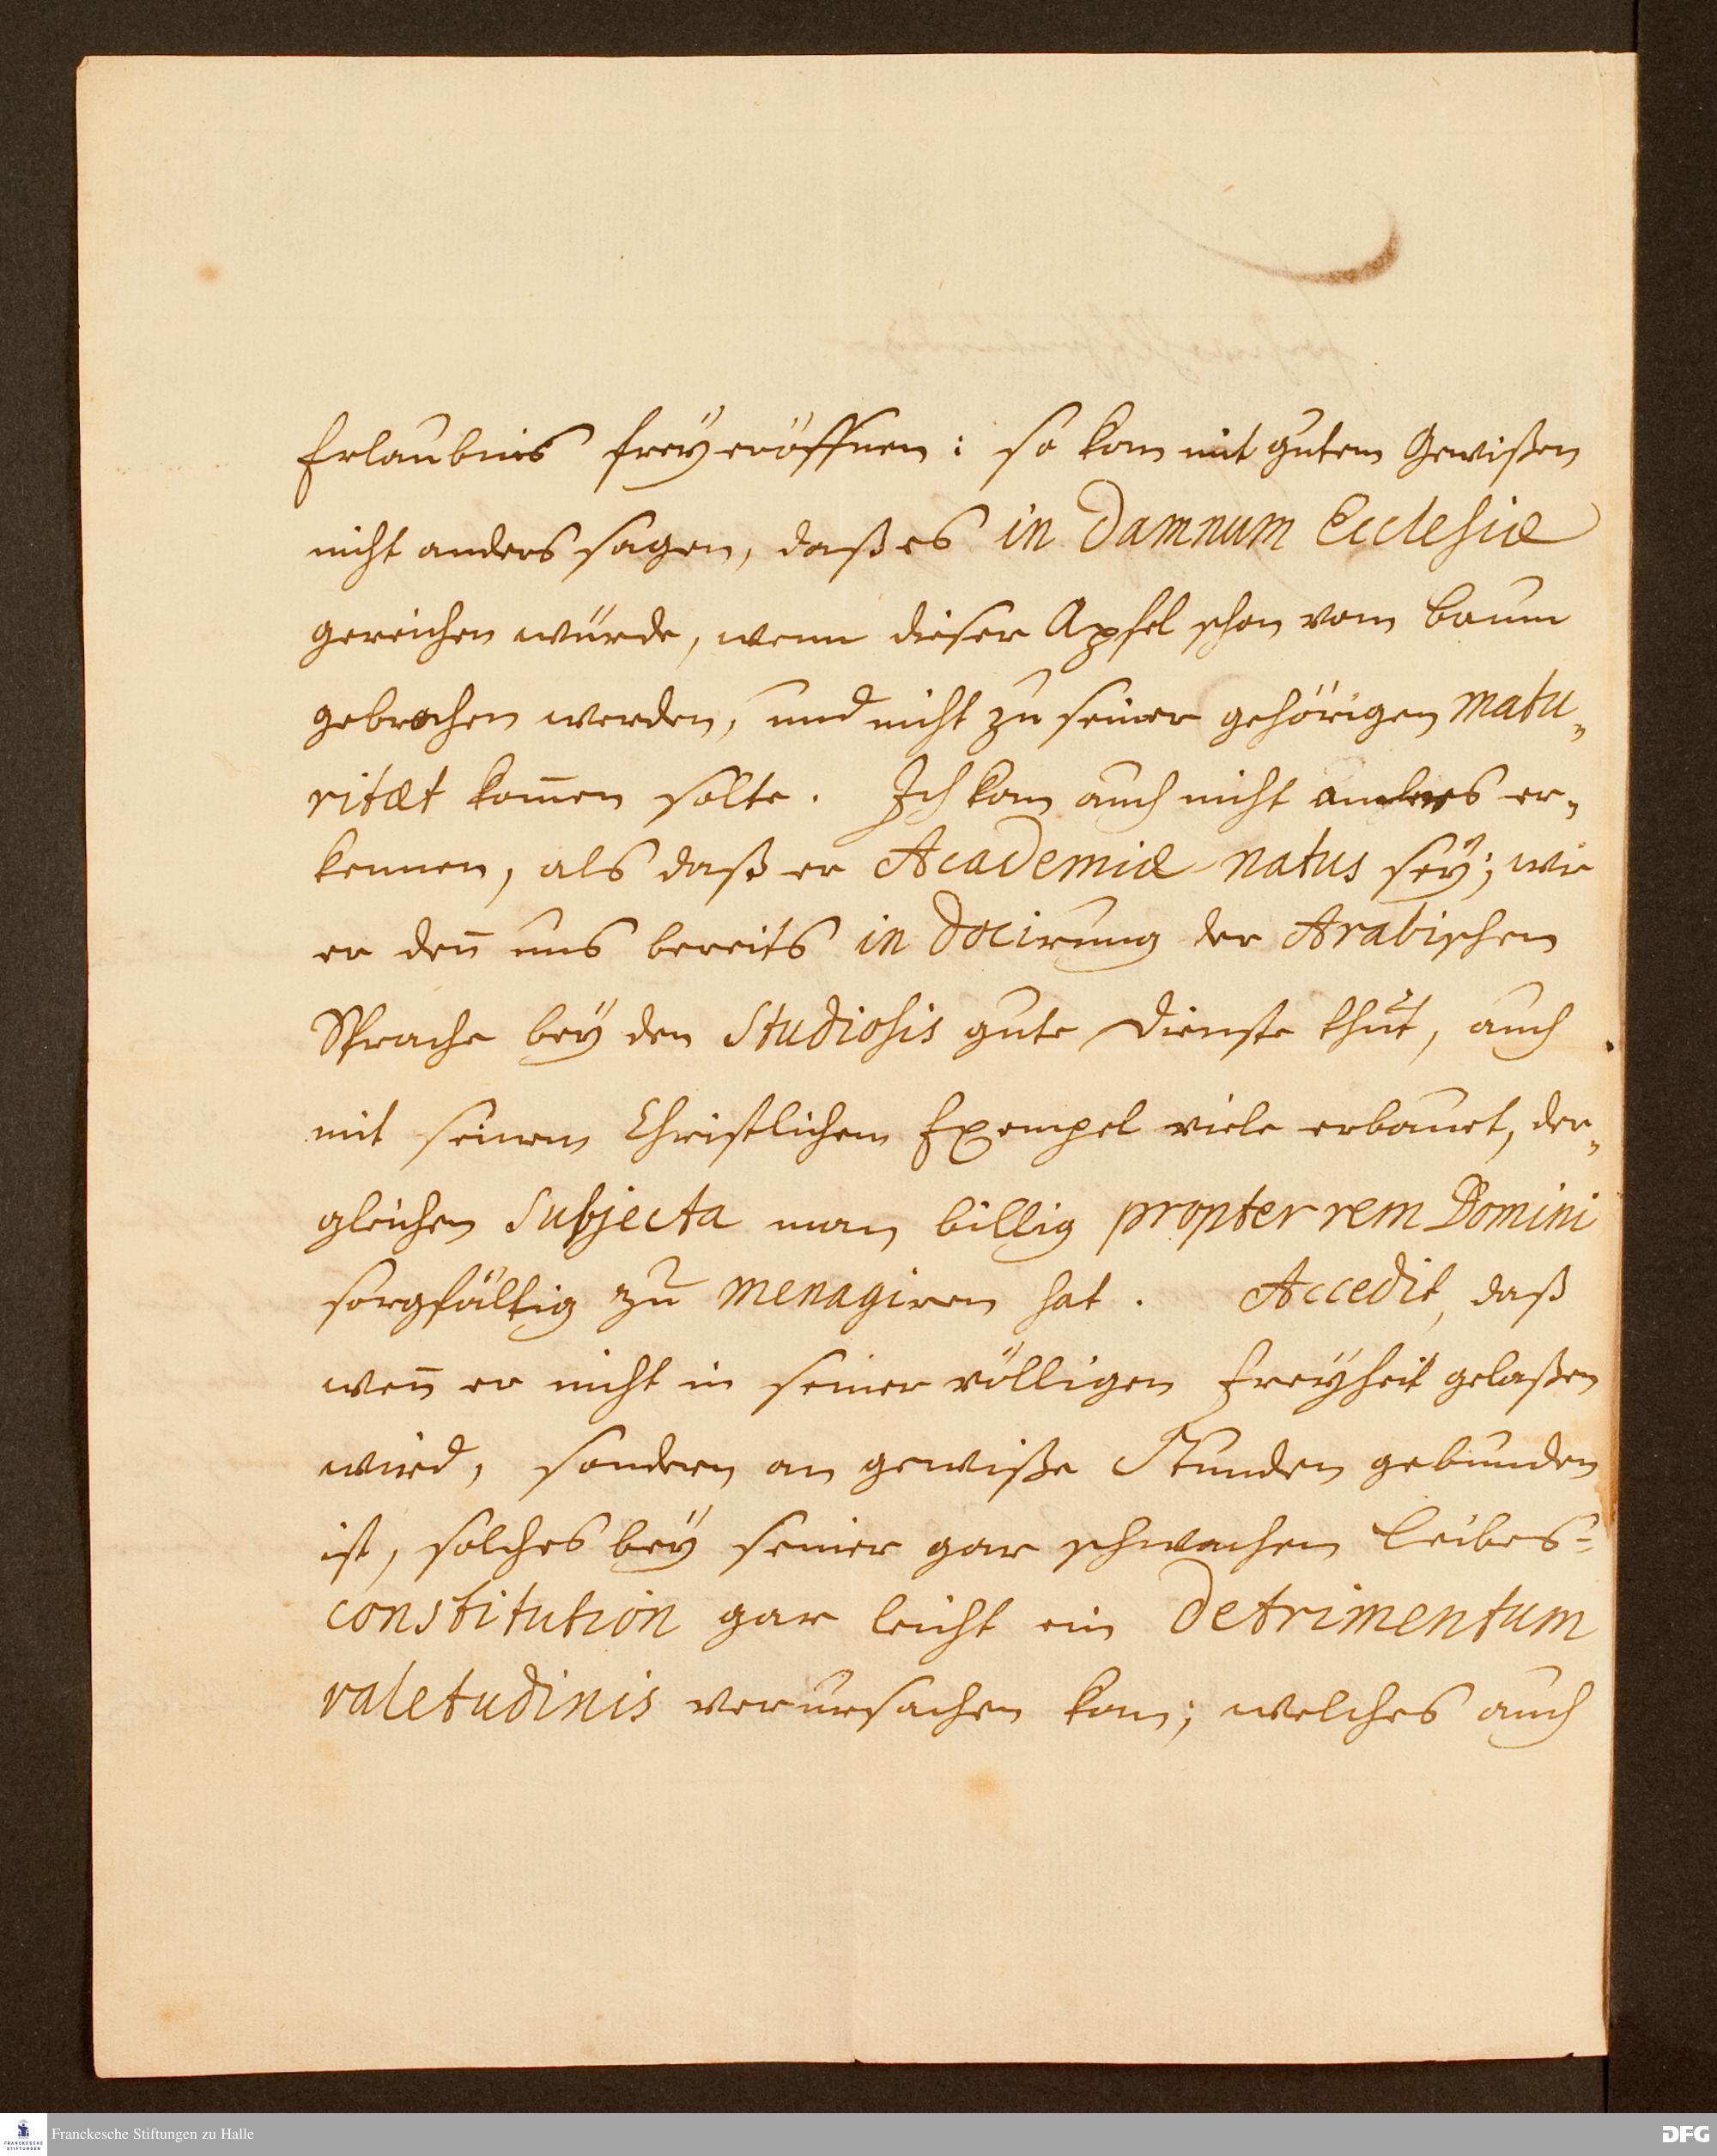 Erlaubnis frey eröffnen: so kan mit gutem Gewißen
nicht anders sagen, daß es in damnum Ecclesiæ
gereichen würde, wenn dieser Apfel schon vom Baum
gebrochen werden, und nicht zu seiner gehörigen matu„
ritæt kom̄en solte. Ich kan auch nicht anders er„
kennen, als daß er Academiæ natus sey; wie
er den̄ uns bereits in docirung der Arabischen
Sprache bey den Studiosis gute Dienste thut, auch
mit seinem Christlichen Exempel viele erbauet, der„
gleichen Subjecta man billig propter rem Domini
sorgfältig zu menagiren hat. Accedit, daß
wen̄ er nicht in seiner völligen Freyheit gelaßen
wird, sondern an gewiße Stunden gebunden
ist, solches bey seiner gar schwachen Leibes=
constitution gar leicht ein detrimentum
valetudinis verursachen kan; welches auch
FRANCKESCHE STIFTUNGEN
Franckesche Stiftungen zu Halle
DFG